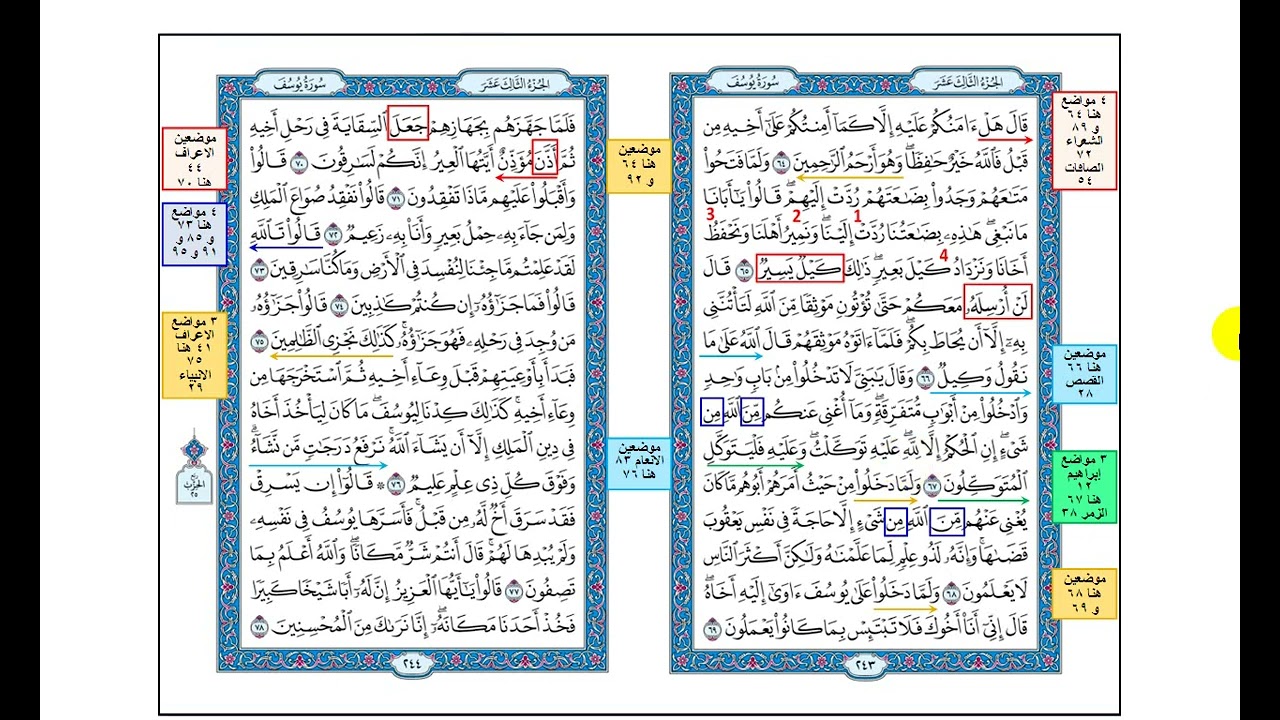 الجزء الثالث عشر
سورة يوسف
قَالَ هَلْ ءَامَنُكُمْ عَلَيْهِ إِلَّا كَمَآ أَمِنتُكُمْ عَلَىٰٓ أَخِيهِ مِن
قَبْلُ فَٱللَّهُ خَيْرٌ حَٰفِظًا وَهُوَ أَرْحَمُ ٱلرَّٰحِمِينَ ٦٤ وَلَمَّا فَتَحُوا۟
مَتَٰعَهُمْ وَجَدُوا۟ بِضَٰعَتَهُمْ رُدَّتْ إِلَيْهِمْ قَالُوا۟ يَٰٓأَبَانَا
3 2 1
مَا نَبْغِى هَٰذِهِۦ بِضَٰعَتُنَا رُدَّتْ إِلَيْنَا وَنَمِيرُ أَهْلَنَا وَنَحْفَظُ
4
أَخَانَا وَنَزْدَادُ كَيْلَ بَعِيرٍ ذَٰلِكَ كَيْلٌ يَسِيرٌ ٦٥ قَالَ
لَنْ أُرْسِلَهُۥ مَعَكُمْ حَتَّىٰ تُؤْتُونِ مَوْثِقًا مِّنَ ٱللَّهِ لَتَأْتُنَّنِى
بِهِۦٓ إِلَّآ أَن يُحَاطَ بِكُمْ فَلَمَّآ ءَاتَوْهُ مَوْثِقَهُمْ قَالَ ٱللَّهُ عَلَىٰ مَا
نَقُولُ وَكِيلٌ ٦٦ وَقَالَ يَٰبَنِىَّ لَا تَدْخُلُوا۟ مِنۢ بَابٍ وَٰحِدٍ
وَٱدْخُلُوا۟ مِنْ أَبْوَٰبٍ مُّتَفَرِّقَةٍ وَمَآ أُغْنِى عَنكُم مِّنَ ٱللَّهِ مِن
شَىْءٍ إِنِ ٱلْحُكْمُ إِلَّا لِلَّهِ عَلَيْهِ تَوَكَّلْتُ وَعَلَيْهِ فَلْيَتَوَكَّلِ
ٱلْمُتَوَكِّلُونَ ٦٧ وَلَمَّا دَخَلُوا۟ مِنْ حَيْثُ أَمَرَهُمْ أَبُوهُم مَّا كَانَ
يُغْنِى عَنْهُم مِّنَ ٱللَّهِ مِن شَىْءٍ إِلَّا حَاجَةً فِى نَفْسِ يَعْقُوبَ
قَضَىٰهَا وَإِنَّهُۥ لَذُو عِلْمٍ لِّمَا عَلَّمْنَٰهُ وَلَٰكِنَّ أَكْثَرَ ٱلنَّاسِ
لَا يَعْلَمُونَ ٦٨ وَلَمَّا دَخَلُوا۟ عَلَىٰ يُوسُفَ ءَاوَىٰٓ إِلَيْهِ أَخَاهُ
قَالَ إِنِّىٓ أَنَا۠ أَخُوكَ فَلَا تَبْتَئِسْ بِمَا كَانُوا۟ يَعْمَلُونَ ٦٩
٢٤٣
٤ مواضع
هنا ٦٤
و ٨٩
الشعراء
٧٢
الصافات
٥٤
موضعين
هنا ٦٦
القصص
٢٨
٣ مواضع
إبراهيم
١٢
هنا ٦٧
الزمر ٣٨
موضعين
هنا ٦٨
و ٦٩
موضعين
هنا ٦٤
و ٩٢
موضعين
الانعام ٨٣
هنا ٧٦
الجزء الثالث عشر
سورة يوسف
فَلَمَّا جَهَّزَهُم بِجَهَازِهِمْ جَعَلَ ٱلسِّقَايَةَ فِى رَحْلِ أَخِيهِ
ثُمَّ أَذَّنَ مُؤَذِّنٌ أَيَّتُهَا ٱلْعِيرُ إِنَّكُمْ لَسَٰرِقُونَ ٧٠ قَالُوا۟
وَأَقْبَلُوا۟ عَلَيْهِم مَّاذَا تَفْقِدُونَ ٧١ قَالُوا۟ نَفْقِدُ صُوَاعَ ٱلْمَلِكِ
وَلِمَن جَآءَ بِهِۦ حِمْلُ بَعِيرٍ وَأَنَا۠ بِهِۦ زَعِيمٌ ٧٢ قَالُوا۟ تَٱللَّهِ
لَقَدْ عَلِمْتُم مَّا جِئْنَا لِنُفْسِدَ فِى ٱلْأَرْضِ وَمَا كُنَّا سَٰرِقِينَ ٧٣
قَالُوا۟ فَمَا جَزَٰٓؤُهُۥٓ إِن كُنتُمْ كَٰذِبِينَ ٧٤ قَالُوا۟ جَزَٰٓؤُهُۥ
مَن وُجِدَ فِى رَحْلِهِۦ فَهُوَ جَزَٰٓؤُهُۥ كَذَٰلِكَ نَجْزِى ٱلظَّٰلِمِينَ ٧٥
فَبَدَأَ بِأَوْعِيَتِهِمْ قَبْلَ وِعَآءِ أَخِيهِ ثُمَّ ٱسْتَخْرَجَهَا مِن
وِعَآءِ أَخِيهِ كَذَٰلِكَ كِدْنَا لِيُوسُفَ مَا كَانَ لِيَأْخُذَ أَخَاهُ
فِى دِينِ ٱلْمَلِكِ إِلَّآ أَن يَشَآءَ ٱللَّهُ نَرْفَعُ دَرَجَٰتٍ مَّن نَّشَآءُ
وَفَوْقَ كُلِّ ذِى عِلْمٍ عَلِيمٌ ٧٦ ۞ قَالُوٓا۟ إِن يَسْرِقْ
فَقَدْ سَرَقَ أَخٌ لَّهُۥ مِن قَبْلُ فَأَسَرَّهَا يُوسُفُ فِى نَفْسِهِۦ
وَلَمْ يُبْدِهَا لَهُمْ قَالَ أَنتُمْ شَرٌّ مَّكَانًا وَٱللَّهُ أَعْلَمُ بِمَا
تَصِفُونَ ٧٧ قَالُوا۟ يَٰٓأَيُّهَا ٱلْعَزِيزُ إِنَّ لَهُۥٓ أَبًا شَيْخًا كَبِيرًا
فَخُذْ أَحَدَنَا مَكَانَهُۥٓ إِنَّا نَرَىٰكَ مِنَ ٱلْمُحْسِنِينَ ٧٨
٢٤٤
موضعين
الاعراف
٤٤
هنا ٧٠
٤ مواضع
هنا ٧٣
و ٨٥ و
٩١ و ٩٥
٣ مواضع
الاعراف
٤١ هنا
٧٥
الانبياء
٢٩